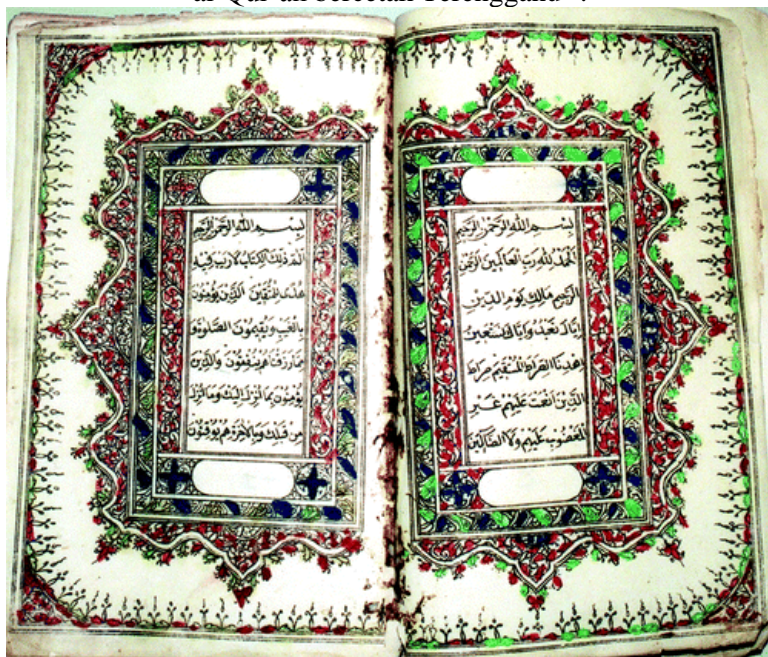 al-Qur'an bercetak Terengganu
بسم الله الرحمن الرحيم
الحمد لله رب العالمين الرحمن
الرحيم مالك يوم الدين
اياك نعبد واياك نستعين
اهدنا الصراط المستقيم صراط
الذين انعمت عليهم غير
المغضوب عليهم ولا الضالين
بسم الله الرحمن الرحيم
الم ذلك الكتاب لا ريب فيه
هدى للمتقين الذين يؤمنون
بالغيب ويقيمون الصلوة و
مما رزقناهم ينفقون والذين
يؤمنون بما انزل اليك وما انزل
من قبلك وبالاخرة هم يوقنون